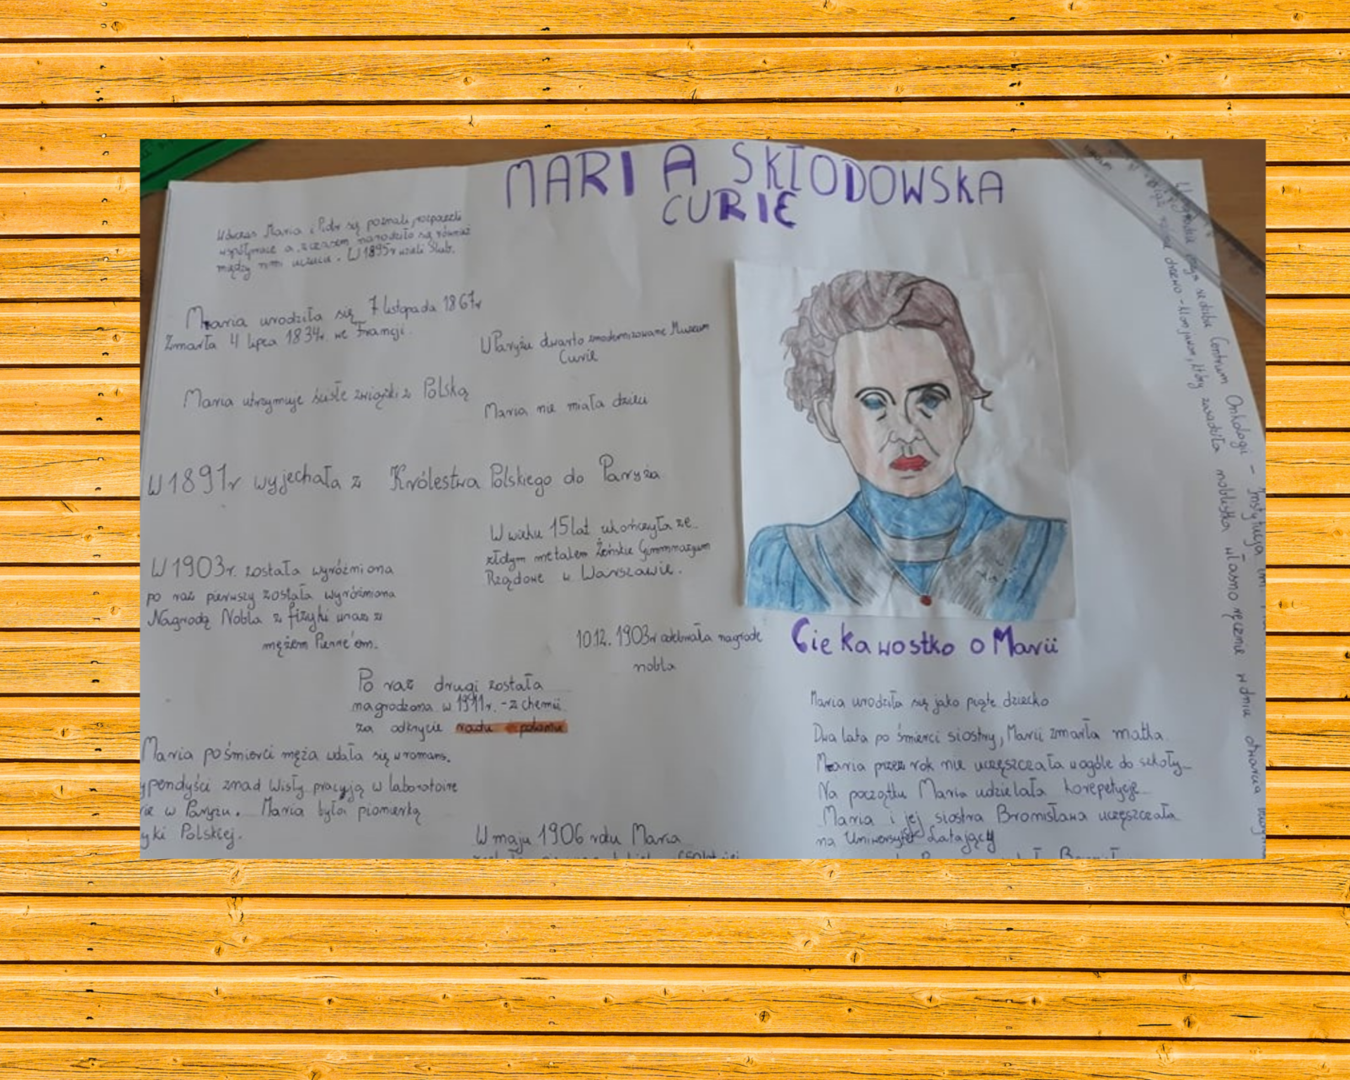 MARIA SKŁODOWSKA
CURIE
Wówczas Maria i Piotr się poznali, rozpoczęli
współpracę a z czasem narodziło się również
między nimi uczucie. W 1895r wzięli ślub.
Maria urodziła się 7 listopada 1867r
Zmarła 4 lipca 1834r. we Francji.
Maria utrzymuje ścisłe związki z Polską
W Paryżu otwarto zmodernizowane Muzeum
Curie
Maria nie miała dzieci
W 1891r wyjechała z Królestwa Polskiego do Paryża
W wieku 15 lat ukończyła ze
złotym metalem Żeńskie Gimnnazjum
Rządowe w Warszawie.
W 1903r. została wyróżniona
po raz pierwszy została wyróżniona
Nagrodą Nobla z fizyki wraz z
mężem Pierre'em.
10.12. 1903r odebrała nagrode
nobla
Po raz drugi została
nagrodzona w 1911r. - z chemii
za odkrycie radu i polonu
Maria po śmierci męża wdała się w romans.
ypendyści znad Wisły pracują w laboratoire
rie w Paryżu. Maria była pionierką
yki Polskiej.
W maju 1906 roku Maria
Ciekawostko o Marii
Maria urodziła się jako piąte dziecko
Dwa lata po śmierci siostry, Marii zmarła matka
Maria przez rok nie uczęszczała wogóle do szkoły
Na początku Maria udzielała korepetycje
Maria i jej siostra Bronisława uczęszczała
na Uniwersytet Latający
siedziba Centrum Onkologi - Instytucja
drzewo - który zasadziła noblistka własno ręcznie w dniu otwarcia